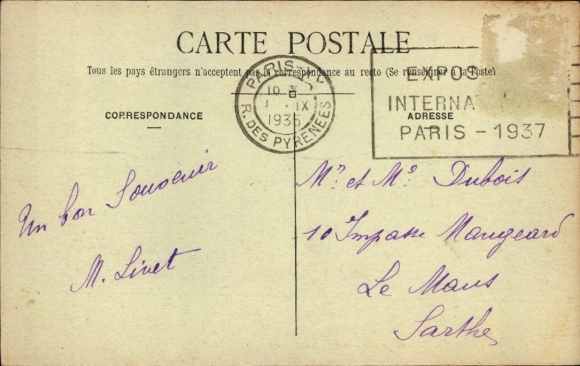 CARTE POSTALE
Tous les pays étrangers n'acceptent pas la correspondance au recto (Se renseigner à la Poste)
CORRESPONDANCE
ADRESSE
PARIS
R. DES PYRENEES
IX
1935
EXPOS
INTERNA
PARIS - 1937
Un bon Souvenir
M. Livet
Mr. et Me Dubois
10 Impasse Maugeard
Le Mans
Sarthe